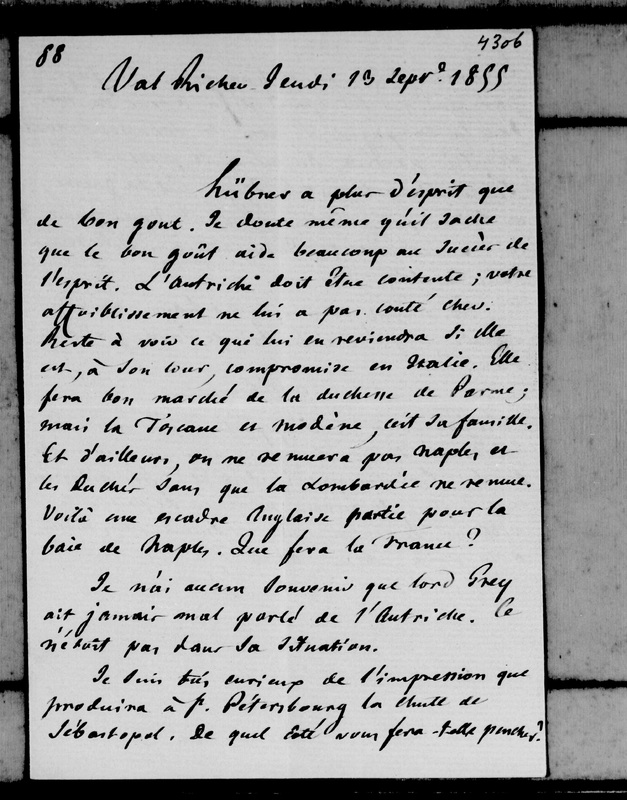 88
4306
Val Richer Jeudi 13 Sept. 1855
Hübner a plus d'esprit que
de bon gout. Je doute même qu'il sache
que le bon goût aide beaucoup au succès de
l'esprit. L'Autriche doit être contente ; votre
affoiblissement ne lui a pas couté cher.
Reste à voir ce qui lui en reviendra si elle
est, à son tour, compromise en Italie. Elle
fera bon marché de la duchesse de Parme ;
mais la Toscane et Modène, c'est sa famille.
Et d'ailleurs, on ne remuera pas Naples et
les Duchés sans que la Lombardie ne remue.
Voilà une escadre Anglaise partie pour la
baie de Naples. Que fera la France ?
Je n'ai aucun souvenir que lord Grey
ait jamais mal parlé de l'Autriche. Ce
n'étoit pas dans sa situation.
Je suis très curieux de l'impression que
produira à St. Pétersbourg la chute de
Sébastopol. De quel côté vous fera-t-elle pencher ?